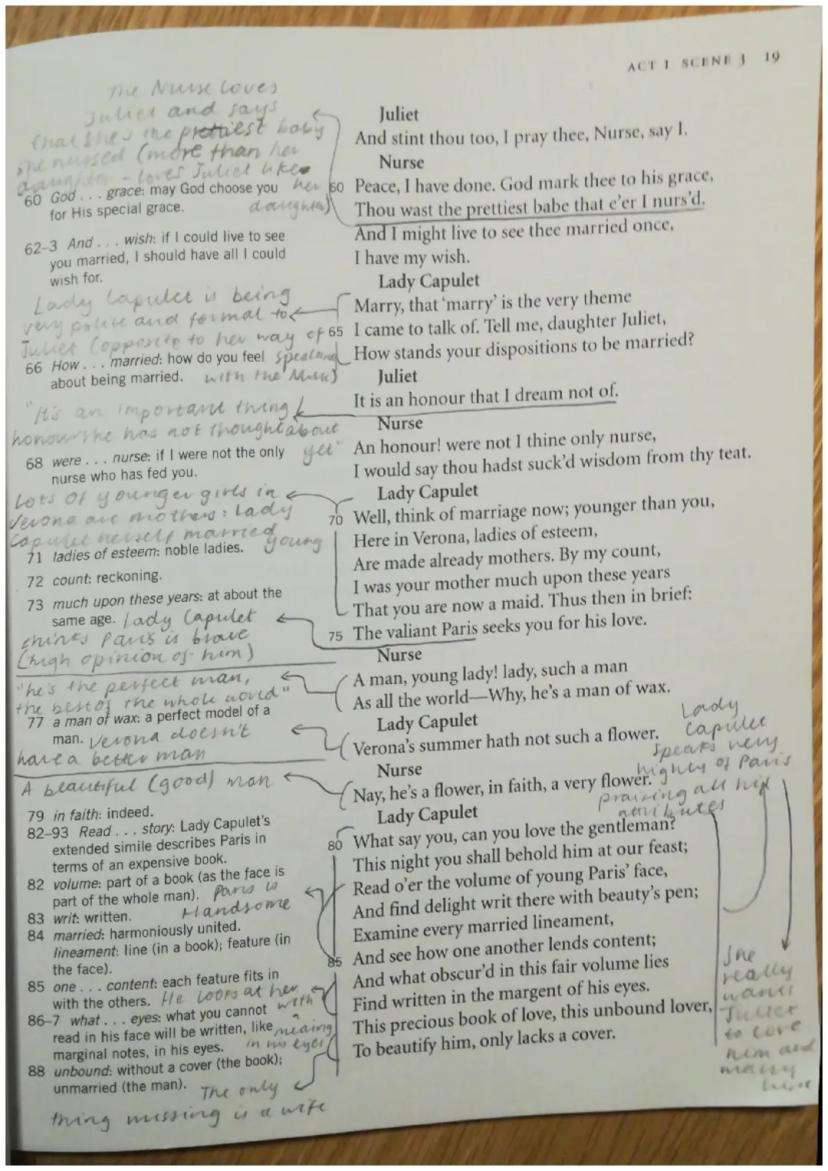 ACT I SCENE 3 19
The Nurse loves
Juliet and says
that she's the prettiest baby
she nursed (more than her
daughter - loves Juliet like
her
daughter)
60 God . . . grace: may God choose you
for His special grace.
62–3 And . . . wish: if I could live to see
you married, I should have all I could
wish for.
Lady Capulet is being
very polite and formal to
Juliet (opposite to her way of
speaking
with the Nurse)
66 How . . . married: how do you feel
about being married.
"It's an important thing/
honour she has not thought about
yet"
68 were . . . nurse: if I were not the only
nurse who has fed you.
Lots of younger girls in
Verona are mothers: Lady
Capulet herself married
young
71 ladies of esteem: noble ladies.
72 count: reckoning.
73 much upon these years: at about the
same age.
Lady Capulet
thinks Paris is brave
(high opinion of him)
"he's the perfect man,
the best of the whole world"
77 a man of wax: a perfect model of a
man.
Verona doesn't
have a better man
A beautiful (good) man
79 in faith: indeed.
82–93 Read . . . story: Lady Capulet's
extended simile describes Paris in
terms of an expensive book.
82 volume: part of a book (as the face is
part of the whole man).
Paris is
Handsome
83 writ: written.
84 married: harmoniously united.
lineament: line (in a book); feature (in
the face).
85 one . . . content: each feature fits in
with the others.
He looks at her
with
meaning
in his eyes
86–7 what . . . eyes: what you cannot
read in his face will be written, like
marginal notes, in his eyes.
88 unbound: without a cover (the book);
unmarried (the man).
The only
thing missing is a wife
Juliet
And stint thou too, I pray thee, Nurse, say I.
Nurse
60 Peace, I have done. God mark thee to his grace,
Thou wast the prettiest babe that e'er I nurs'd.
And I might live to see thee married once,
I have my wish.
Lady Capulet
Marry, that 'marry' is the very theme
65 I came to talk of. Tell me, daughter Juliet,
How stands your dispositions to be married?
Juliet
It is an honour that I dream not of.
Nurse
An honour! were not I thine only nurse,
I would say thou hadst suck'd wisdom from thy teat.
Lady Capulet
70 Well, think of marriage now; younger than you,
Here in Verona, ladies of esteem,
Are made already mothers. By my count,
I was your mother much upon these years
That you are now a maid. Thus then in brief:
75 The valiant Paris seeks you for his love.
Nurse
A man, young lady! lady, such a man
As all the world—Why, he's a man of wax.
Lady Capulet
Verona's summer hath not such a flower.
Nurse
Nay, he's a flower, in faith, a very flower.
Lady Capulet
80 What say you, can you love the gentleman?
This night you shall behold him at our feast;
Read o'er the volume of young Paris' face,
And find delight writ there with beauty's pen;
Examine every married lineament,
85 And see how one another lends content;
And what obscur'd in this fair volume lies
Find written in the margent of his eyes.
This precious book of love, this unbound lover,
To beautify him, only lacks a cover.
Lady
Capulet
speaks very
highly of Paris
praising all his
attributes
She
really
wants
Juliet
to love
him and
marry
him